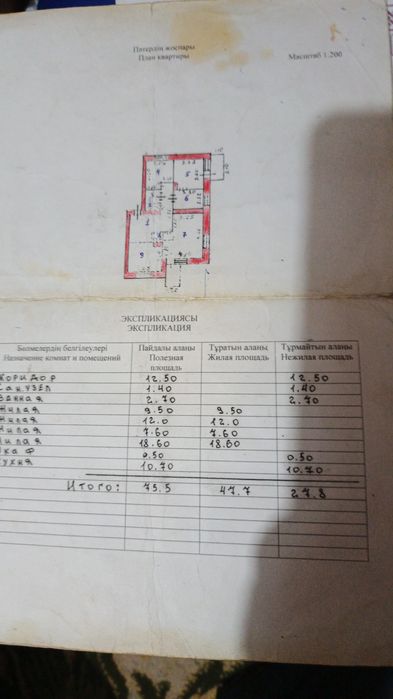 Пәтердің жоспары
План квартиры
Масштаб 1:200
4
5
6
7
9
ЭКСПЛИКАЦИЯСЫ
ЭКСПЛИКАЦИЯ
Бөлмелердің белгілеулері Пайдалы алаңы Тұратын алаңы Тұрмайтын алаңы
Назначение комнат и помещений Полезная площадь Жилая площадь Нежилая площадь
КОРИДОР 12.50 12.50
САНУЗЕЛ 1.40 1.40
ВАННАЯ 2.70 2.70
ЖИЛАЯ 9.50 9.50
ЖИЛАЯ 12.0 12.0
ЖИЛАЯ 7.60 7.60
ЖИЛАЯ 18.60 18.60
ШКАФ 0.50 0.50
КУХНЯ 10.70 10.70
ИТОГО: 75.5 47.7 27.8